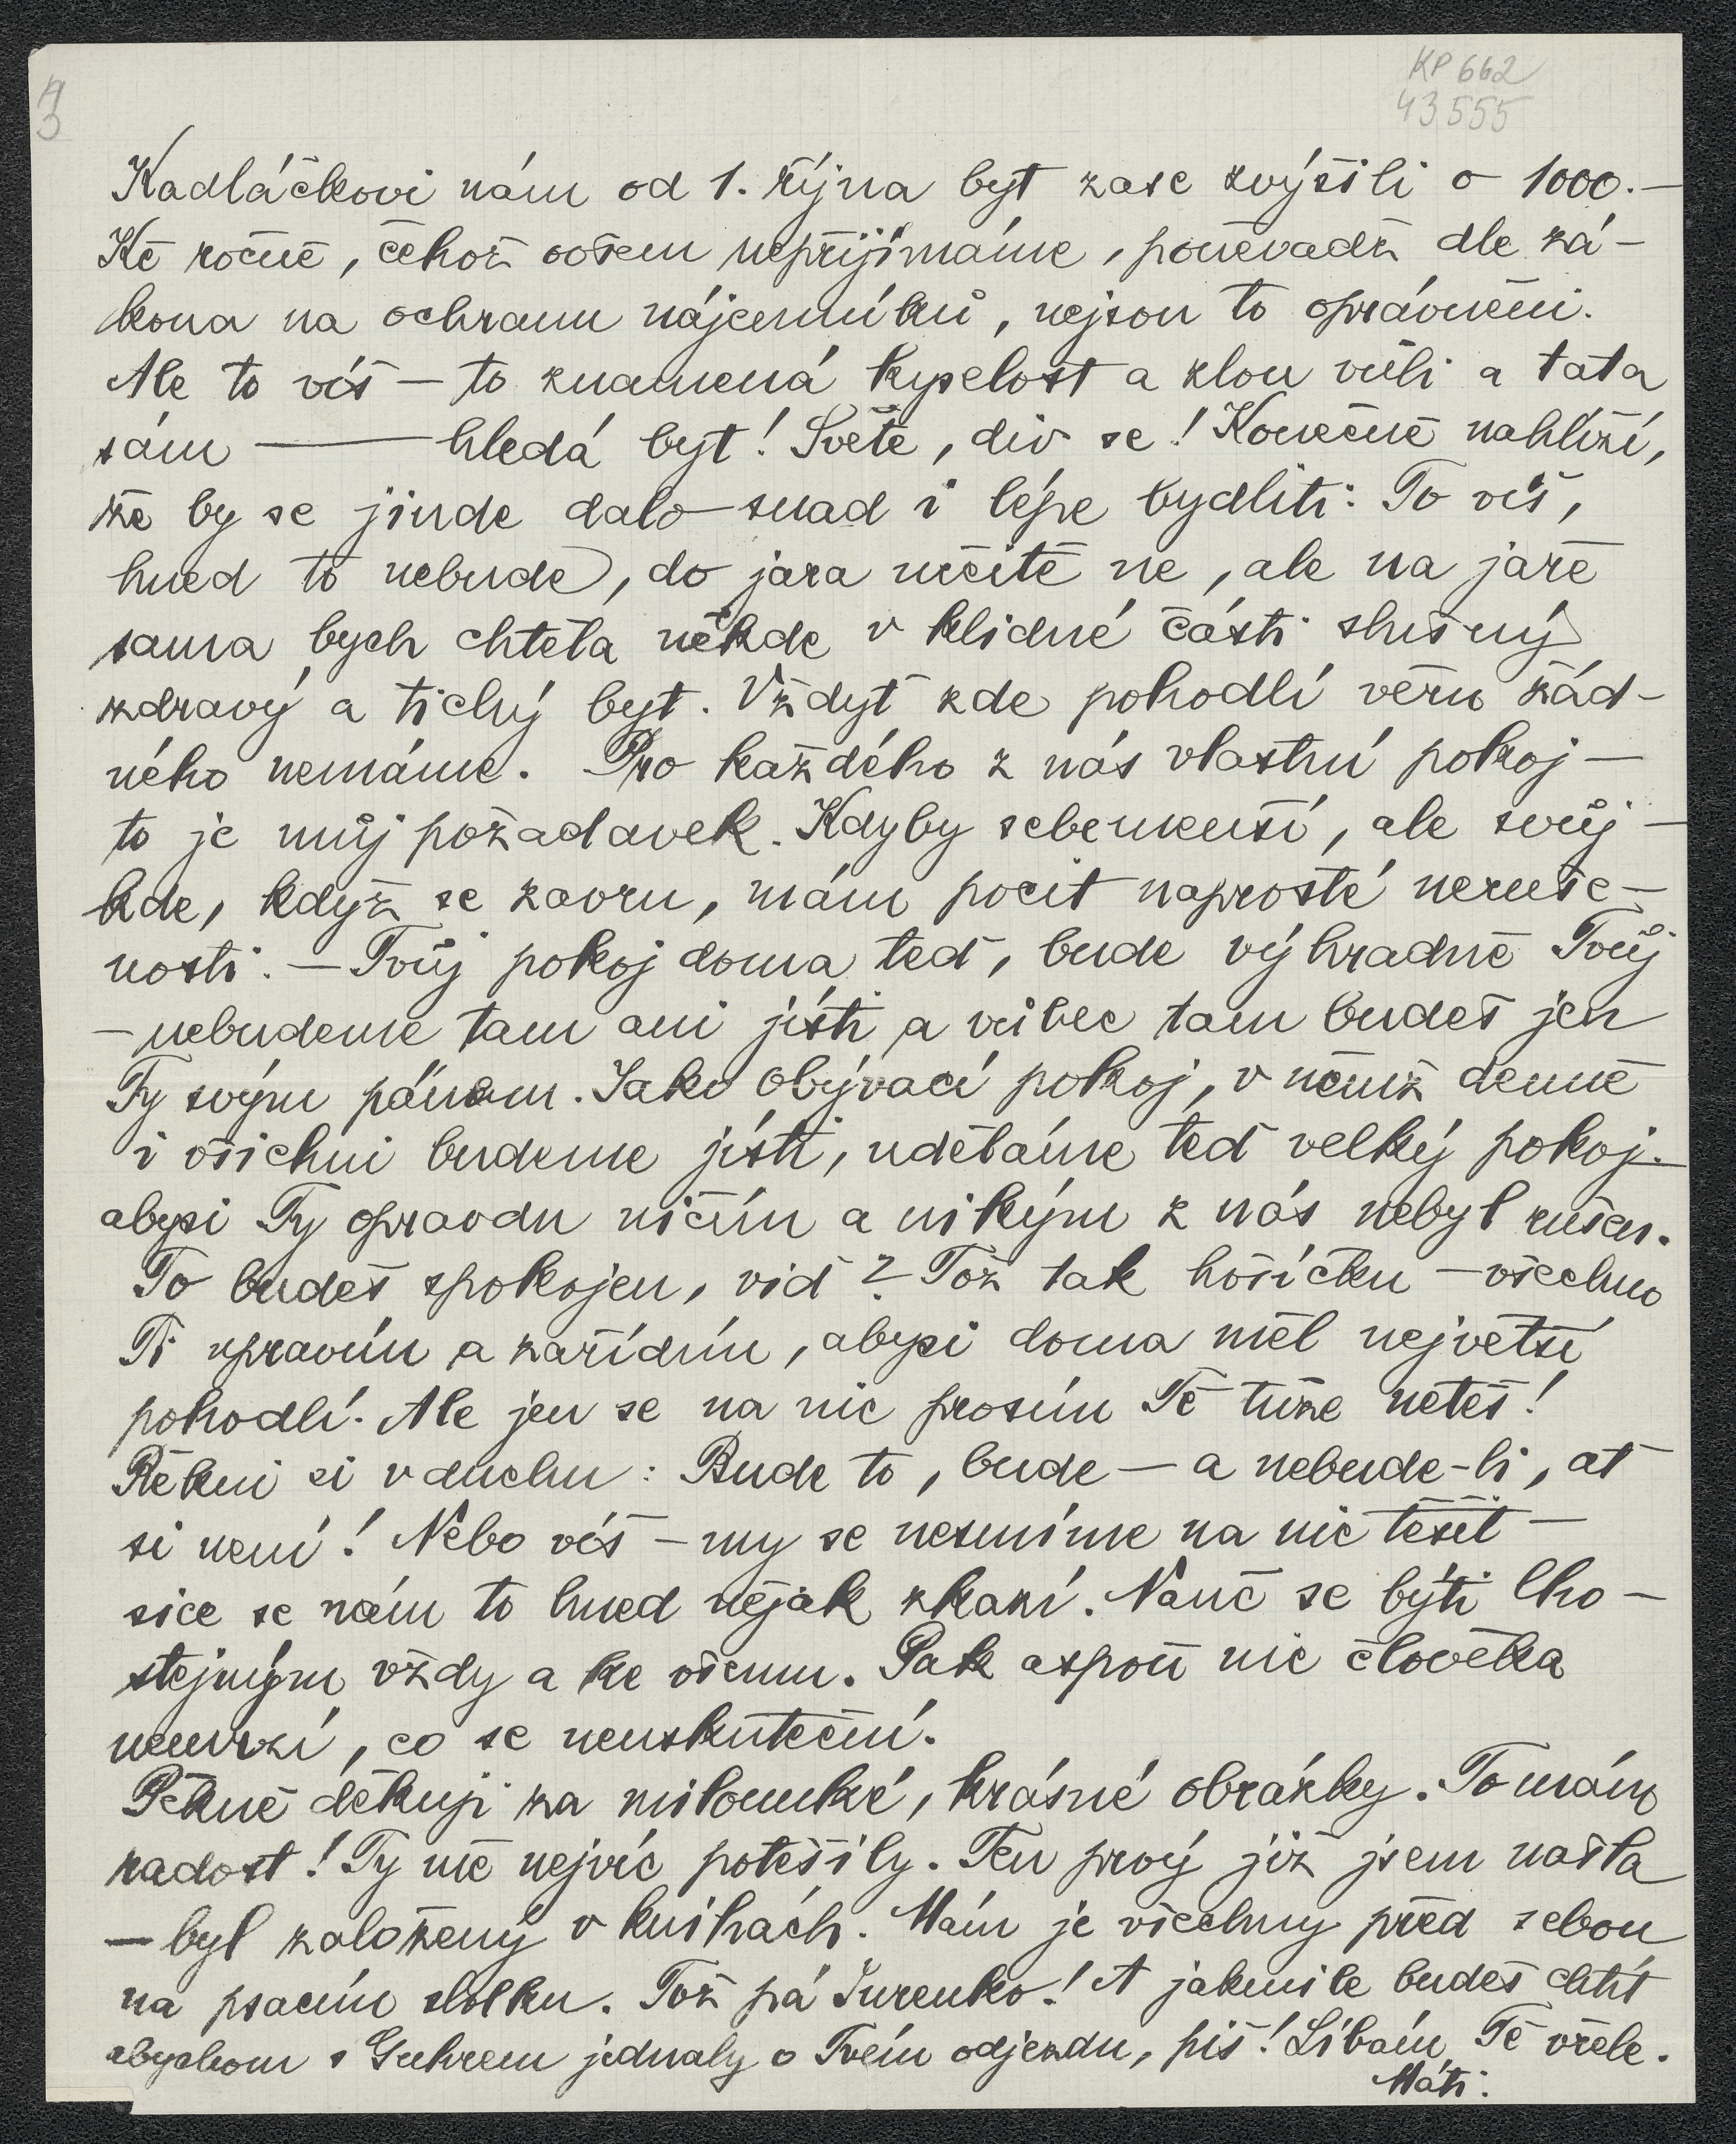 KP 662
43555
Kadláčkovi nám od 1. října byt zase zvýšili o 1000.—
Kč ročně, čehož ovšem nepřijímáme, poněvadž dle zá-
kona na ochranu nájemníků, nejsou to oprávněni.
Ale to víš — to znamená kyselost a zlou vůli a tata
sám — hledá byt! Světe, div se! Konečně nahlíží,
že by se jinde dalo snad i lépe bydliti. To víš,
hned to nebude, do jara určitě ne, ale na jaře
sama bych chtěla někde v klidné části slušný
zdravý a tichý byt. Vždyť zde pohodlí věru žád-
ného nemáme. Pro každého z nás vlastní pokoj —
to je můj požadavek. Kdyby sebemenší, ale svůj —
kde, když se zavru, mám pocit naprosté neruše-
nosti. — Tvůj pokoj doma teď, bude výhradně Tvůj
— nebudeme tam ani jísti a vůbec tam budeš jen
Ty svým pánem. Jako obývací pokoj, v němž denně
i všichni budeme jísti, uděláme teď velký pokoj —
abysi Ty opravdu ničím a nikým z nás nebyl rušen.
To budeš spokojen, viď? — Tož tak hošíčku — všechno
Ti upravím a zařídím, abysi doma měl největší
pohodlí. Ale jen se na nic prosím Tě tuze netěš!
Řekni si v duchu: Bude to, bude — a nebude-li, ať
si není! Nebo víš — my se nesmíme na nic těšit —
sice se nám to hned nějak zkazí. Nauč se býti lho-
stejným vždy a ke všemu. Pak aspoň nic člověka
nemrzí, co se neuskuteční.
Pěkně děkuji za miloučké, krásné obrázky. To mám
radost! Ty mě nejvíc potěšily. Ten prvý již jsem našla
— byl založený v knihách. Mám je všechny před sebou
na psacím stolku. Tož pá Jurenko! A jakmile budeš chtít
abychom s Guhrem jednaly o Tvém odjezdu, piš! Líbám Tě vřele.
Máti.